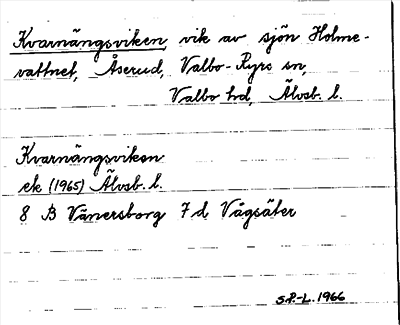 Kvarnängsviken, vik av sjön Holme-
vattnet, Åserud, Valbo-Ryrs sn,
Valbo hd, Älvsb. l.
Kvarnängsviken
ek (1965) Älvsb. l.
8 B Vänersborg 7 d Vågsäter
S.P.-L. 1966